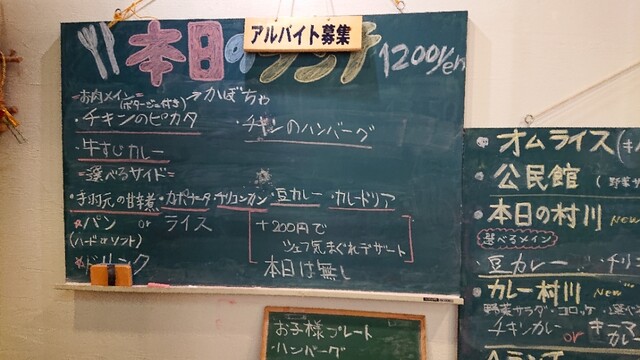 アルバイト募集
本日のランチ 1200yen
=お肉メイン= → かぼちゃ
(ポタージュ付き)
・チキンのピカタ ・チキンのハンバーグ
・牛すじカレー
=選べるサイド=
・手羽元の甘辛煮・カポナータ・チリコンカン・豆カレー・カレードリア
☆パン or ライス
(ハード or ソフト)
☆ドリンク
+200円で
シェフ気まぐれデザート
本日は無し
お子様プレート
・ハンバーグ
オムライス(キ
公民館 (野菜サ
本日の村川 New
選べるメイン
豆カレー チリコ
カレー村川 New
野菜サラダ・コロッケ・選べ
チキンカレー or キーマカレー
Aランチ